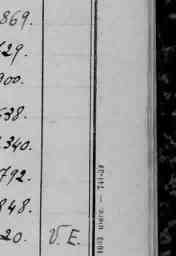 869.
29.
900.
538.
340.
792.
848.
20. V. E.